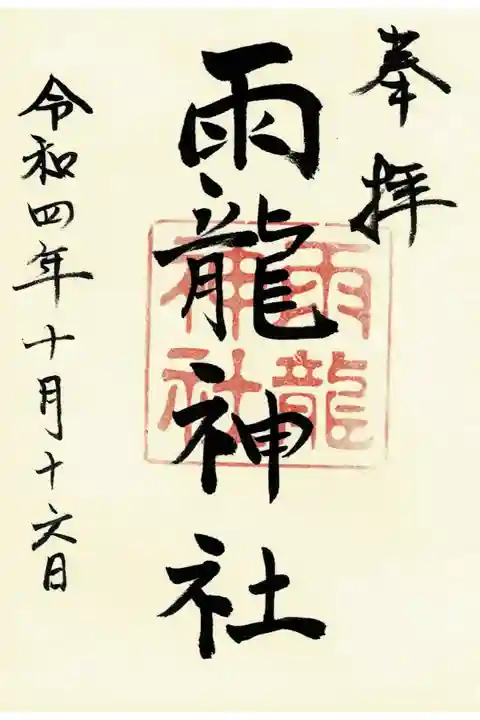 奉拝
雨龍神社
雨龍
神社
令和四年十月十六日